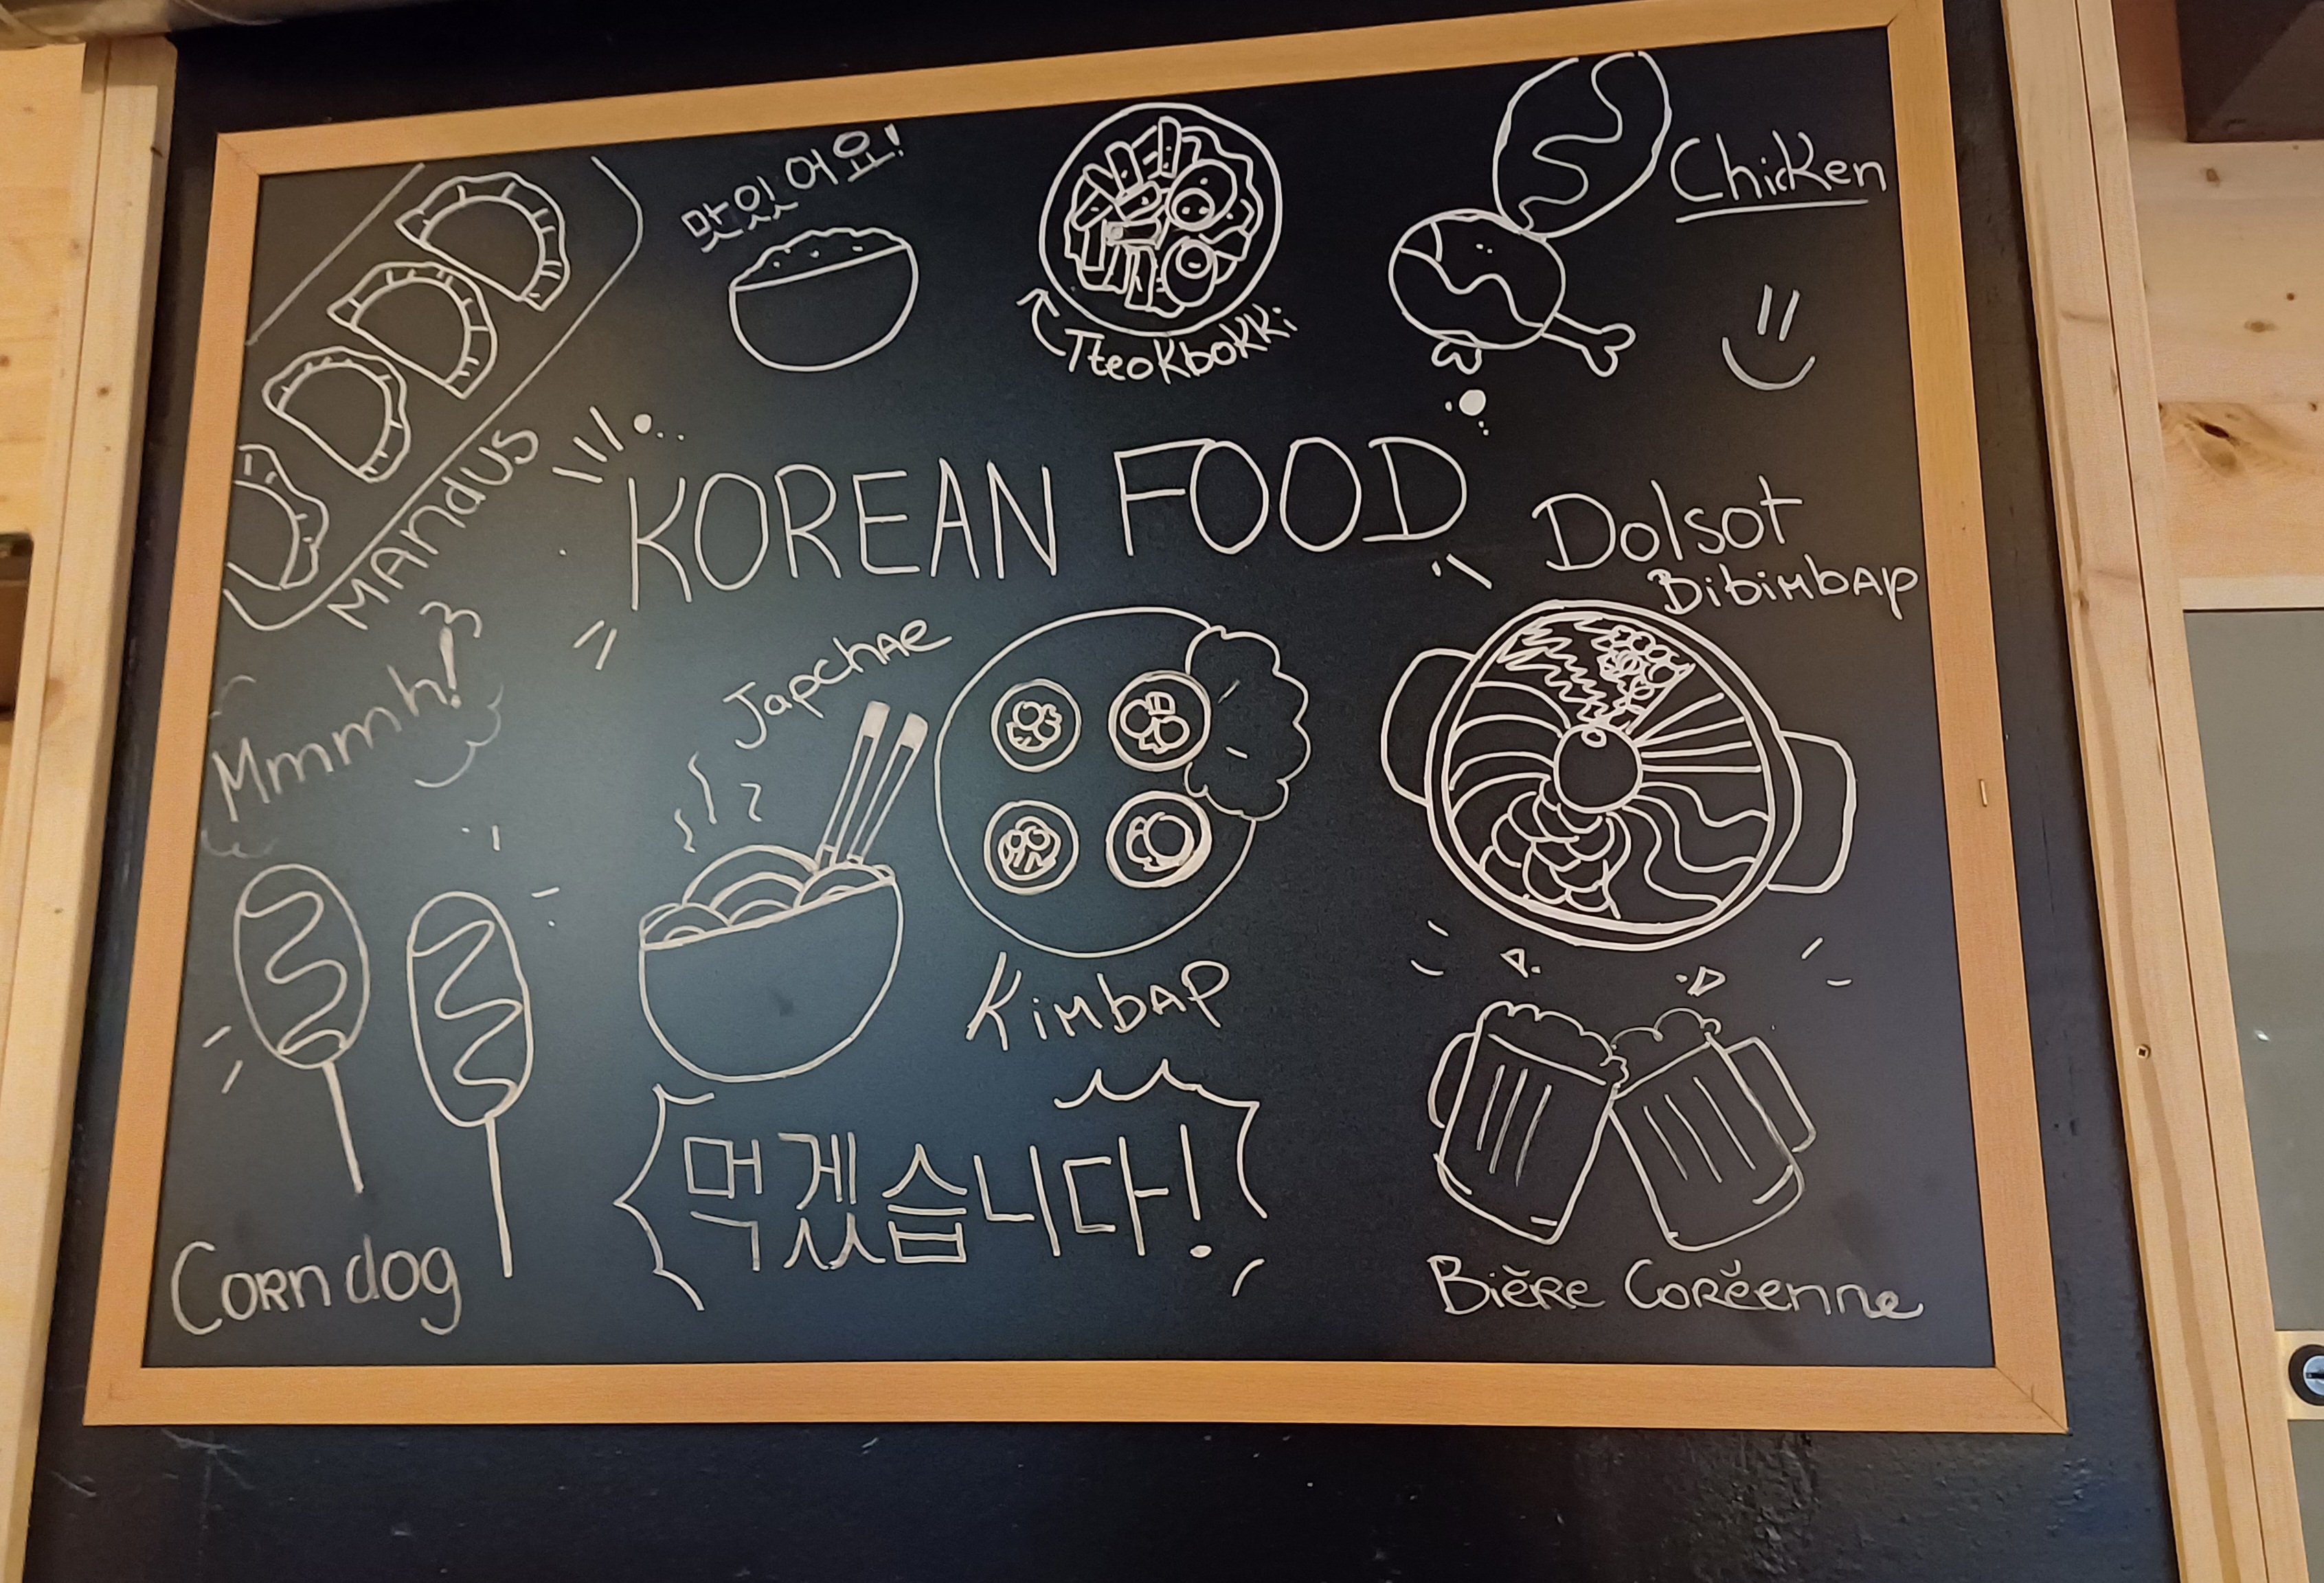 맛있어요!
Tteokbokki
Chicken
MANdUS
KOREAN FOOD
Dolsot
BibiMbAp
Mmmmh!
JApchAe
KiMbAp
Corn dog
먹겠습니다!
Bière Coréenne